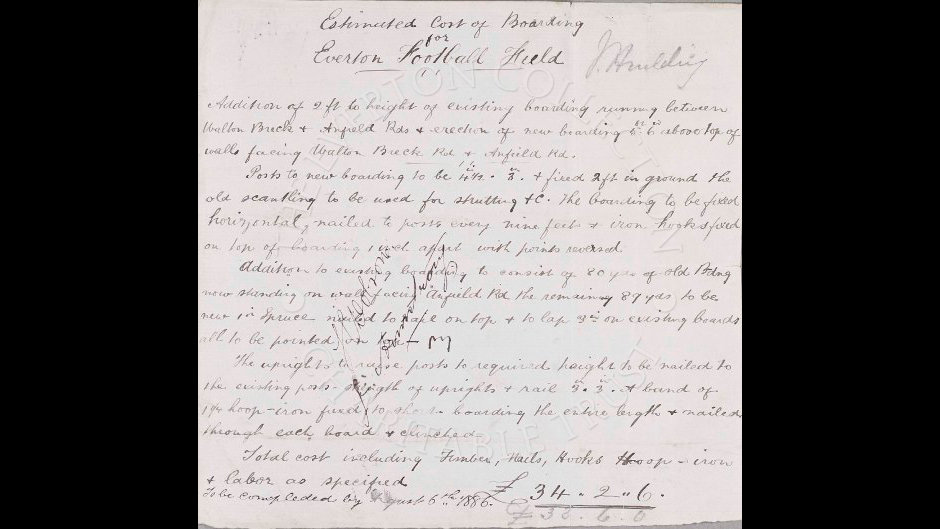 Estimated Cost of Boarding
for
Everton Football Field
J. Houlding
Addition of 2 ft to height of existing boarding running between
Walton Breck & Anfield Rds & erection of new boarding 5ft 6in above top of
walls facing Walton Breck Rd & Anfield Rd.
Posts to new boarding to be 4½in . 3in . & fixed 2ft in ground the
old scantling to be used for strutting &c. The boarding to be fixed
horizontal, nailed to posts every nine feet & iron hooks fixed
on top of boarding 1 yd. apart with points reversed
Addition to existing boarding to consist of 80 yds of old Bdng
now standing on wall facing Anfield Rd the remaining 89 yds to be
new 1in Spruce nailed to rail on top & to lap 3in on existing boards
all to be pointed on top
The uprights to raise posts to required height to be nailed to
the existing posts - strength of uprights & rail 3in . A band of
1¼ hoop-iron fixed to boarding the entire length & nailed
through each board & clinched -
Total cost including Timber, Nails, Hooks Hoop-iron
& labor as specified
£ 34 . 2 . 6 .
To be completed by August 6th. 1886.